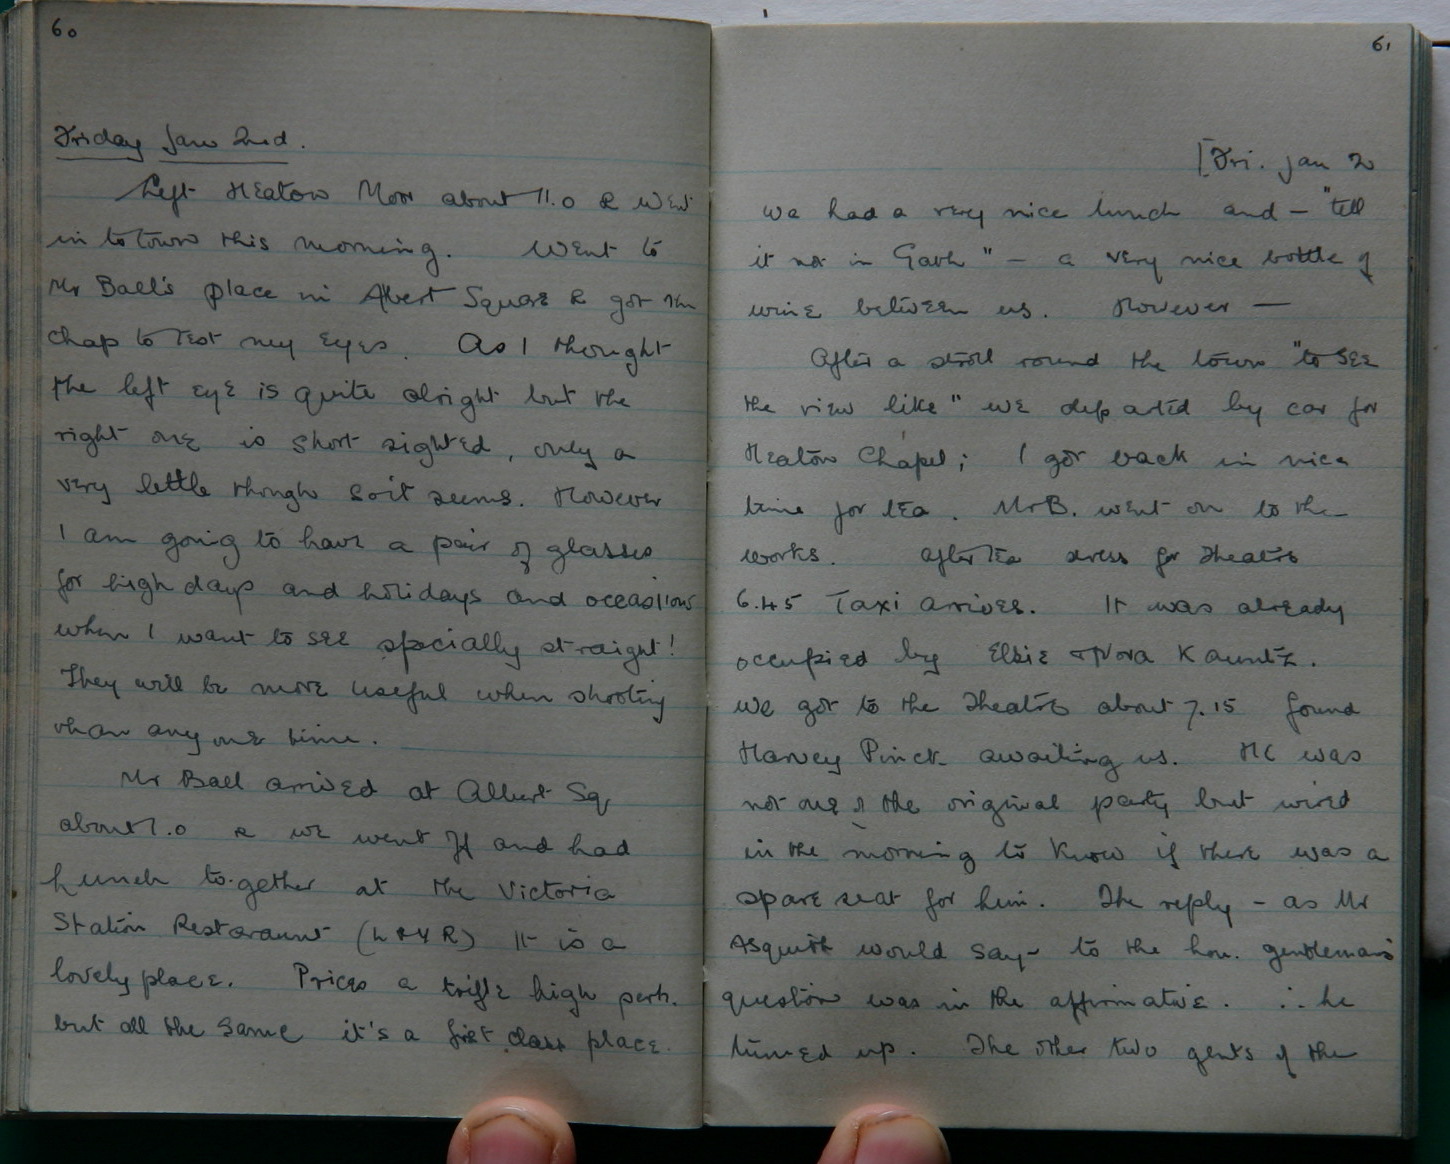 60
Friday Jan 2nd.
Left Heaton Moor about 11.0 & went
in to town this morning. Went to
Mr Ball's place in Albert Square & got the
chap to test my eyes. As I thought
the left eye is quite alright but the
right one is short sighted, only a
very little though so it seems. However
I am going to have a pair of glasses
for high days and holidays and occasions
when I want to see specially straight!
They will be more useful when shooting
than any one time.
Mr Ball arrived at Albert Sq
about 1.0 & we went off and had
lunch together at the Victoria
Station Restaraunt (L & Y R) It is a
lovely place. Prices a trifle high perh.
but all the same it's a first class place.
61
[Fri. Jan 2
We had a very nice lunch and — "tell
it not in Gath" — a very nice bottle of
wine between us. However —
After a stroll round the town "to see
the view like" we departed by car for
Heaton Chapel; I got back in nice
time for tea. Mr B. went on to the
works. After tea dress for Theatre
6.45 Taxi arrives. It was already
occupied by Elsie & Nora Kauntz.
We got to the Theatre about 7.15 found
Harvey Pinck awaiting us. He was
not one of the original party but wired
in the morning to know if there was a
spare seat for him. The reply - as Mr
Asquith would say - to the hon. gentleman's
question was in the affirmative. ∴ he
turned up. The other two gents of the